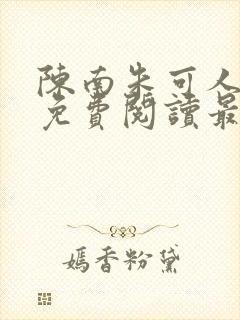 陳南朱可人
免費閱讀最
嫣香粉黛